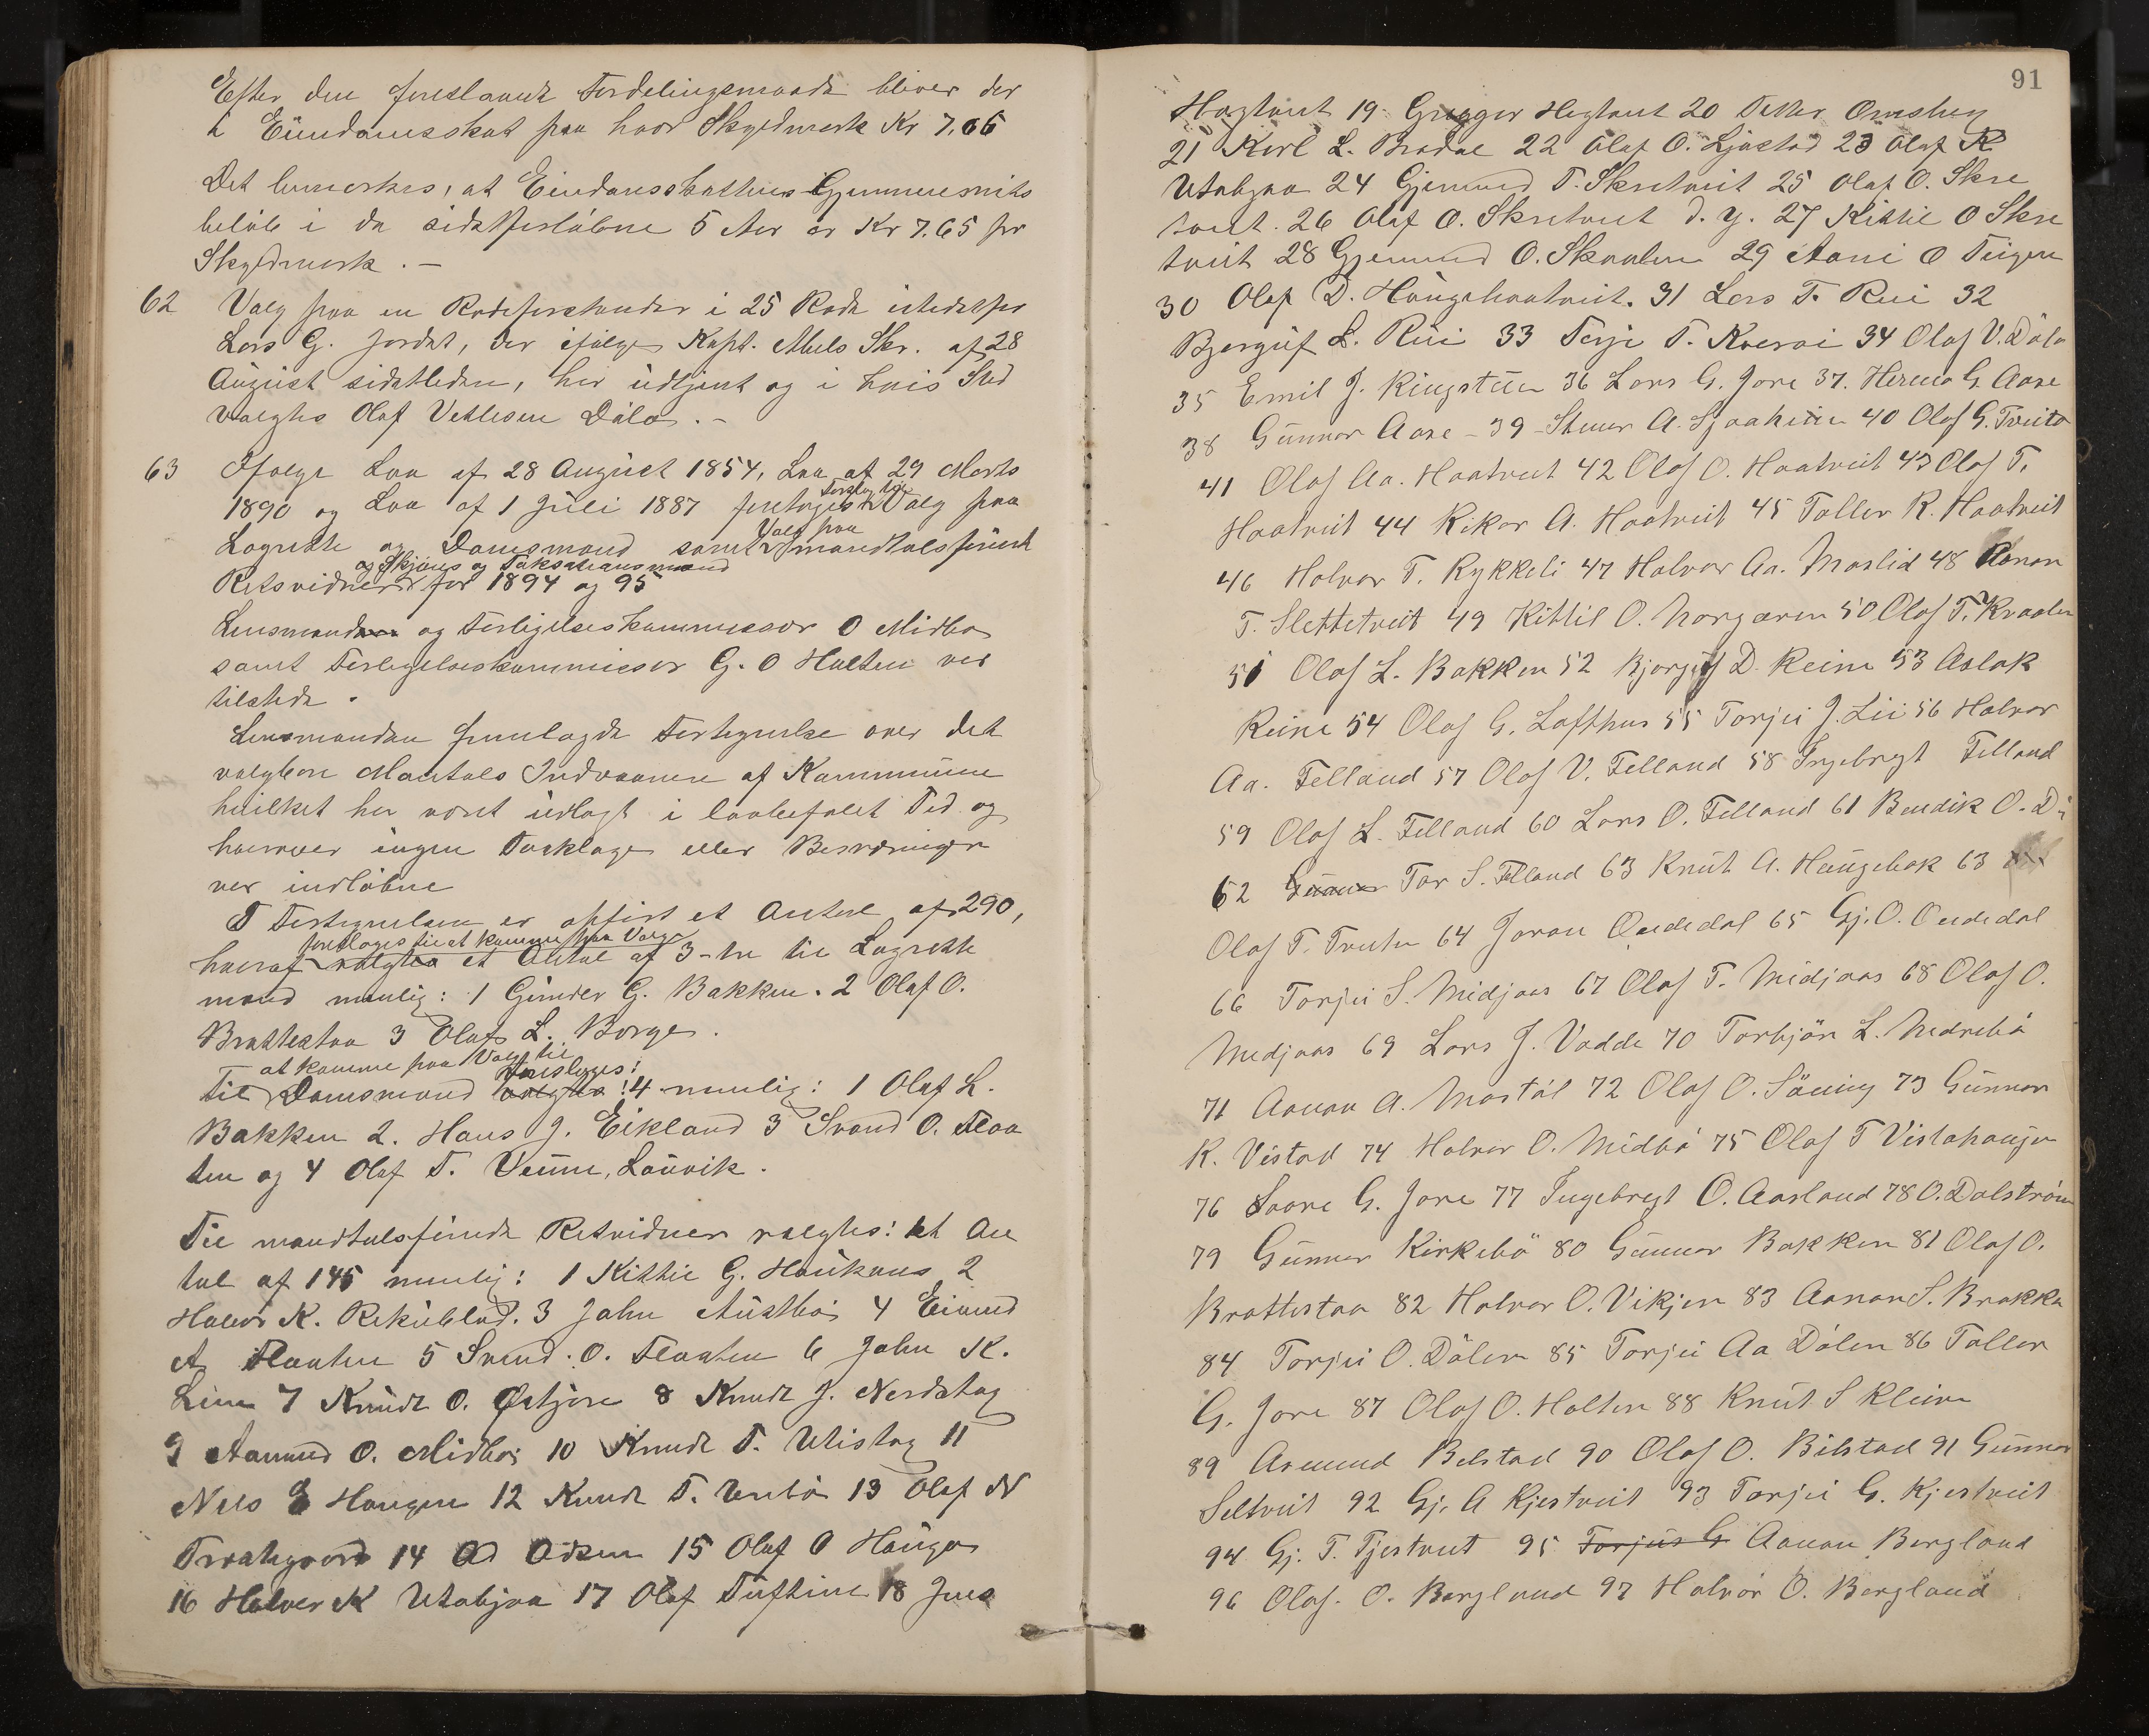 Efter den foreslaaede Fordelingsmaade bliver der
i Eiendomsskat paa hver Skyldmark Kr 7,66
Det bemerkes, at Eiendomsskattens Gjennemsnits
beløb i de sidstforløbne 5 Aar er Kr 7.65 pr
Skyldmark. -
62 Valg paa en Rodeforstander i 25 Rode istedetfor
Lars G. Jordet, der ifølge Kapt. Skr. af 28
August sidstleden, har udtjent og i hvis Sted
valgtes Olaf Vetlesen Dåla. -
63 Ifølge Lov af 28 August 1854, Lov af 29 Marts
1890 og Lov af 1 Juli 1887 foretoges Forslag til Valg paa
Lagrette og Domsmænd samt Valg paa mandtalsførte
Retsvidner og Skjøns og Taksationsmænd for 1894 og 95
Lensmanden og Forligelseskommissær O Midbø
samt Forligelseskommissær G. O Holten var
tilstede.
Lensmanden fremlagde Fortegnelse over det
valgbare Mantals Indvaanere af Kommunen
hvilket har været udlagt i lovbefalet Tid og
hvorover ingen Paaklage eller Besværinger
var indløbne
I Fortegnelsen er opført et Antal af 290,
hvoraf valgtes foreslages til at komme paa Valg et Antal af 3-tre til Lagrette
mænd nemlig: 1 Gunder G. Bakken. 2 Olaf O.
Brattestaa 3 Olaf L. Borge.
at komme paa Valg til
Til Domsmænd valgtes foreslages: 4 nemlig: 1 Olaf L.
Bakken 2. Hans J. Eikland 3 Svend O. Flaa
ten og 4 Olaf T. Venne, Lauvik.
Til mandtalsførte Retsvidner valgtes: et An
tal af 145 nemlig: 1 Kittil G. Haukaas 2
Halvor K. Rekublad. 3 John Austbø 4 Eivind
A Flaaten 5 Svend. O. Flaaten 6 John K.
Lien 7 Knudt O. Østjore 8 Knudt J. Nerdstog
9 Aamund O. Midbø 10 Knudt T. Utistog 11
Nels Haugen 12 Knudt T. 13 Olaf N
14 15 Olaf O Haugen
16 Halvor K Utabjaa 17 Olaf Tuftine 18 Jens
91
Hegtveit 19 Gregger Hegtveit 20 Petter Ormsheg
21 Karl L. Brodal 22 Olaf O. Ljostad 23 Olaf K
Utabjaa 24 Gjermund T. Skretveit 25 Olaf O. Skre
tveit. 26 Olaf O. Skretveit d. y. 27 Kittil O Skre
tveit 28 Gjermund O. Skaalen 29 Aani O Teigen
30 Olaf D. Haugehaatveit. 31 Lars T. Rui 32
Bjørguf L. Rui 33 Terje T. Kverai 34 Olaf V. Dåla
35 Emil J. Ringstuen 36 Lars G. Jore 37. Hermo G. Aase
38 Gunnar Aase - 39 - Steiner A. Sjaaheim 40 Olaf G. Tveito
41 Olaf Aa. Haatveit 42 Olaf O. Haatveit 43 Olaf T.
Haatveit 44 Rikar A. Haatveit 45 Tallev R. Haatveit
46 Halvor T. Rykkeli 47 Halvor Aa. Moslid 48 Aanon
T. Slettetveit 49 Kittil O. Norgaren 50 Olaf T. Kvaalen
51 Olaf L. Bakken 52 Bjorguf D. Reine 53 Aslak
Reine 54 Olaf G. Lofthus 55 Torjei J. Lii 56 Halvor
Aa. Felland 57 Olaf V. Felland 58 Ingebregt Felland
59 Olaf L. Felland 60 Lars O. Felland 61 Bendik O.
62 Gunnar Tor S. Felland 63 Knut A. Haugebak 63
Olaf T. Tveten 64 Joran Ordedal 65 Gj. O. Ordedal
66 Torjei S. Midjaas 67 Olaf T. Midjaas 68 Olaf O.
Midjaas 69 Lars J. Vadde 70 Torbjön L. Nedrebö
71 Aanon A. Mostöl 72 Olaf O. Söning 73 Gunnar
K. Vistad 74 Halvor O. Midbö 75 Olaf T Vistahaugen
76 Saave G. Jore 77 Ingebregt O. Aasland 78 O. Dalström
79 Gunnar Kirkebö 80 Gunnar Bakken 81 Olaf O.
Brattestaa 82 Halvor O. Vikjen 83 Aanon S. Brokke
84 Torjei O. Dölen 85 Torjei Aa Dölen 86 Tallev
G. Jore 87 Olaf O. Holten 88 Knut S Kleiva
89 Asmund Bilstad 90 Olaf O. Bilstad 91 Gunnar
Seltveit 92 Gj. A Kjestveit 93 Torjei G. Kjestveit
94 Gj. T. Tjestveit 95 Torjus G Aanon Bergland
96 Olaf. O. Bergland 97 Halvor O. Bergland